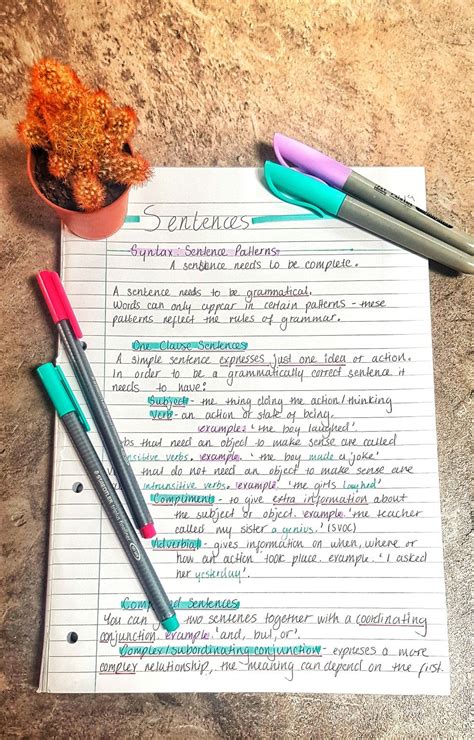 Sentences
Syntax: Sentence Patterns.
A sentence needs to be complete.
A sentence needs to be grammatical.
Words can only appear in certain patterns - these
patterns reflect the rules of grammar.
One Clause Sentences
A simple sentence expresses just one idea or action.
In order to be a grammatically correct sentence it
needs to have:
Subject - the thing doing the action/thinking
Verb - an action or state of being.
example: 'the boy laughed'
that need an object to make sense are called
verbs. example. 'the boy made a joke'
that do not need an object to make sense are
intransitive verbs. example. 'the girls laughed'
Compliment - to give extra information about
the subject or object. example. 'the teacher
called my sister a genius.' (SVOC)
Adverbial - gives information on when, where or
how an action took place. example. 'I asked
her yesterday'.
Sentences
You can two sentences together with a coordinating
conjunction. example. 'and, but, or'.
Complex/subordinating conjunction - expresses a more
complex relationship, the meaning can depend on the first.
STAEDTLER